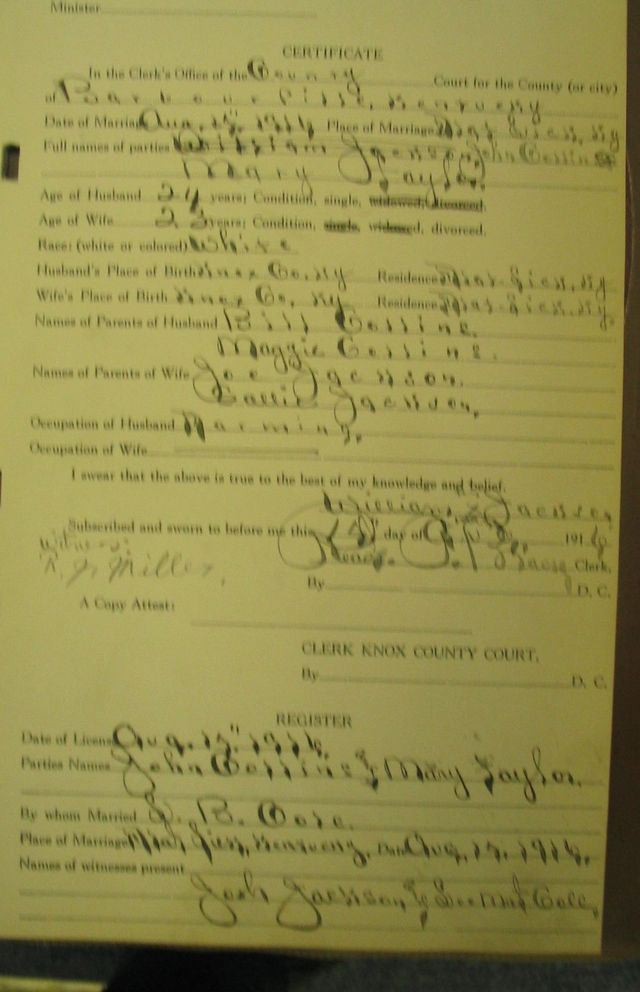 Minister
CERTIFICATE
In the Clerk's Office of the County Court for the County (or city)
of Barbourville, Kentucky
Date of Marriage Aug. 15, 1916 Place of Marriage Ky
Full names of parties William Jackson, John Collins &
Mary Taylor.
Age of Husband 24 years; Condition, single, widowed, divorced.
Age of Wife 23 years; Condition, single, widowed, divorced.
Race: (white or colored) White
Husband's Place of Birth Knox Co, Ky Residence Ky
Wife's Place of Birth Knox Co, Ky Residence Ky,
Names of Parents of Husband Bill Collins.
Maggie Collins.
Names of Parents of Wife Joe Jackson.
Sallie Jackson,
Occupation of Husband Farming,
Occupation of Wife
I swear that the above is true to the best of my knowledge and belief.
William Jackson
Subscribed and sworn to before me this day of 1916
Witness: Clerk,
Miller, By D. C.
A Copy Attest:
CLERK KNOX COUNTY COURT.
By D. C.
REGISTER
Date of License Aug. 15" 1916
Parties Names John Collins & Mary Taylor.
By whom Married B. Cole.
Place of Marriage Kentucky, Aug, 15, 1916,
Names of witnesses present
Josh Jackson & Cole,